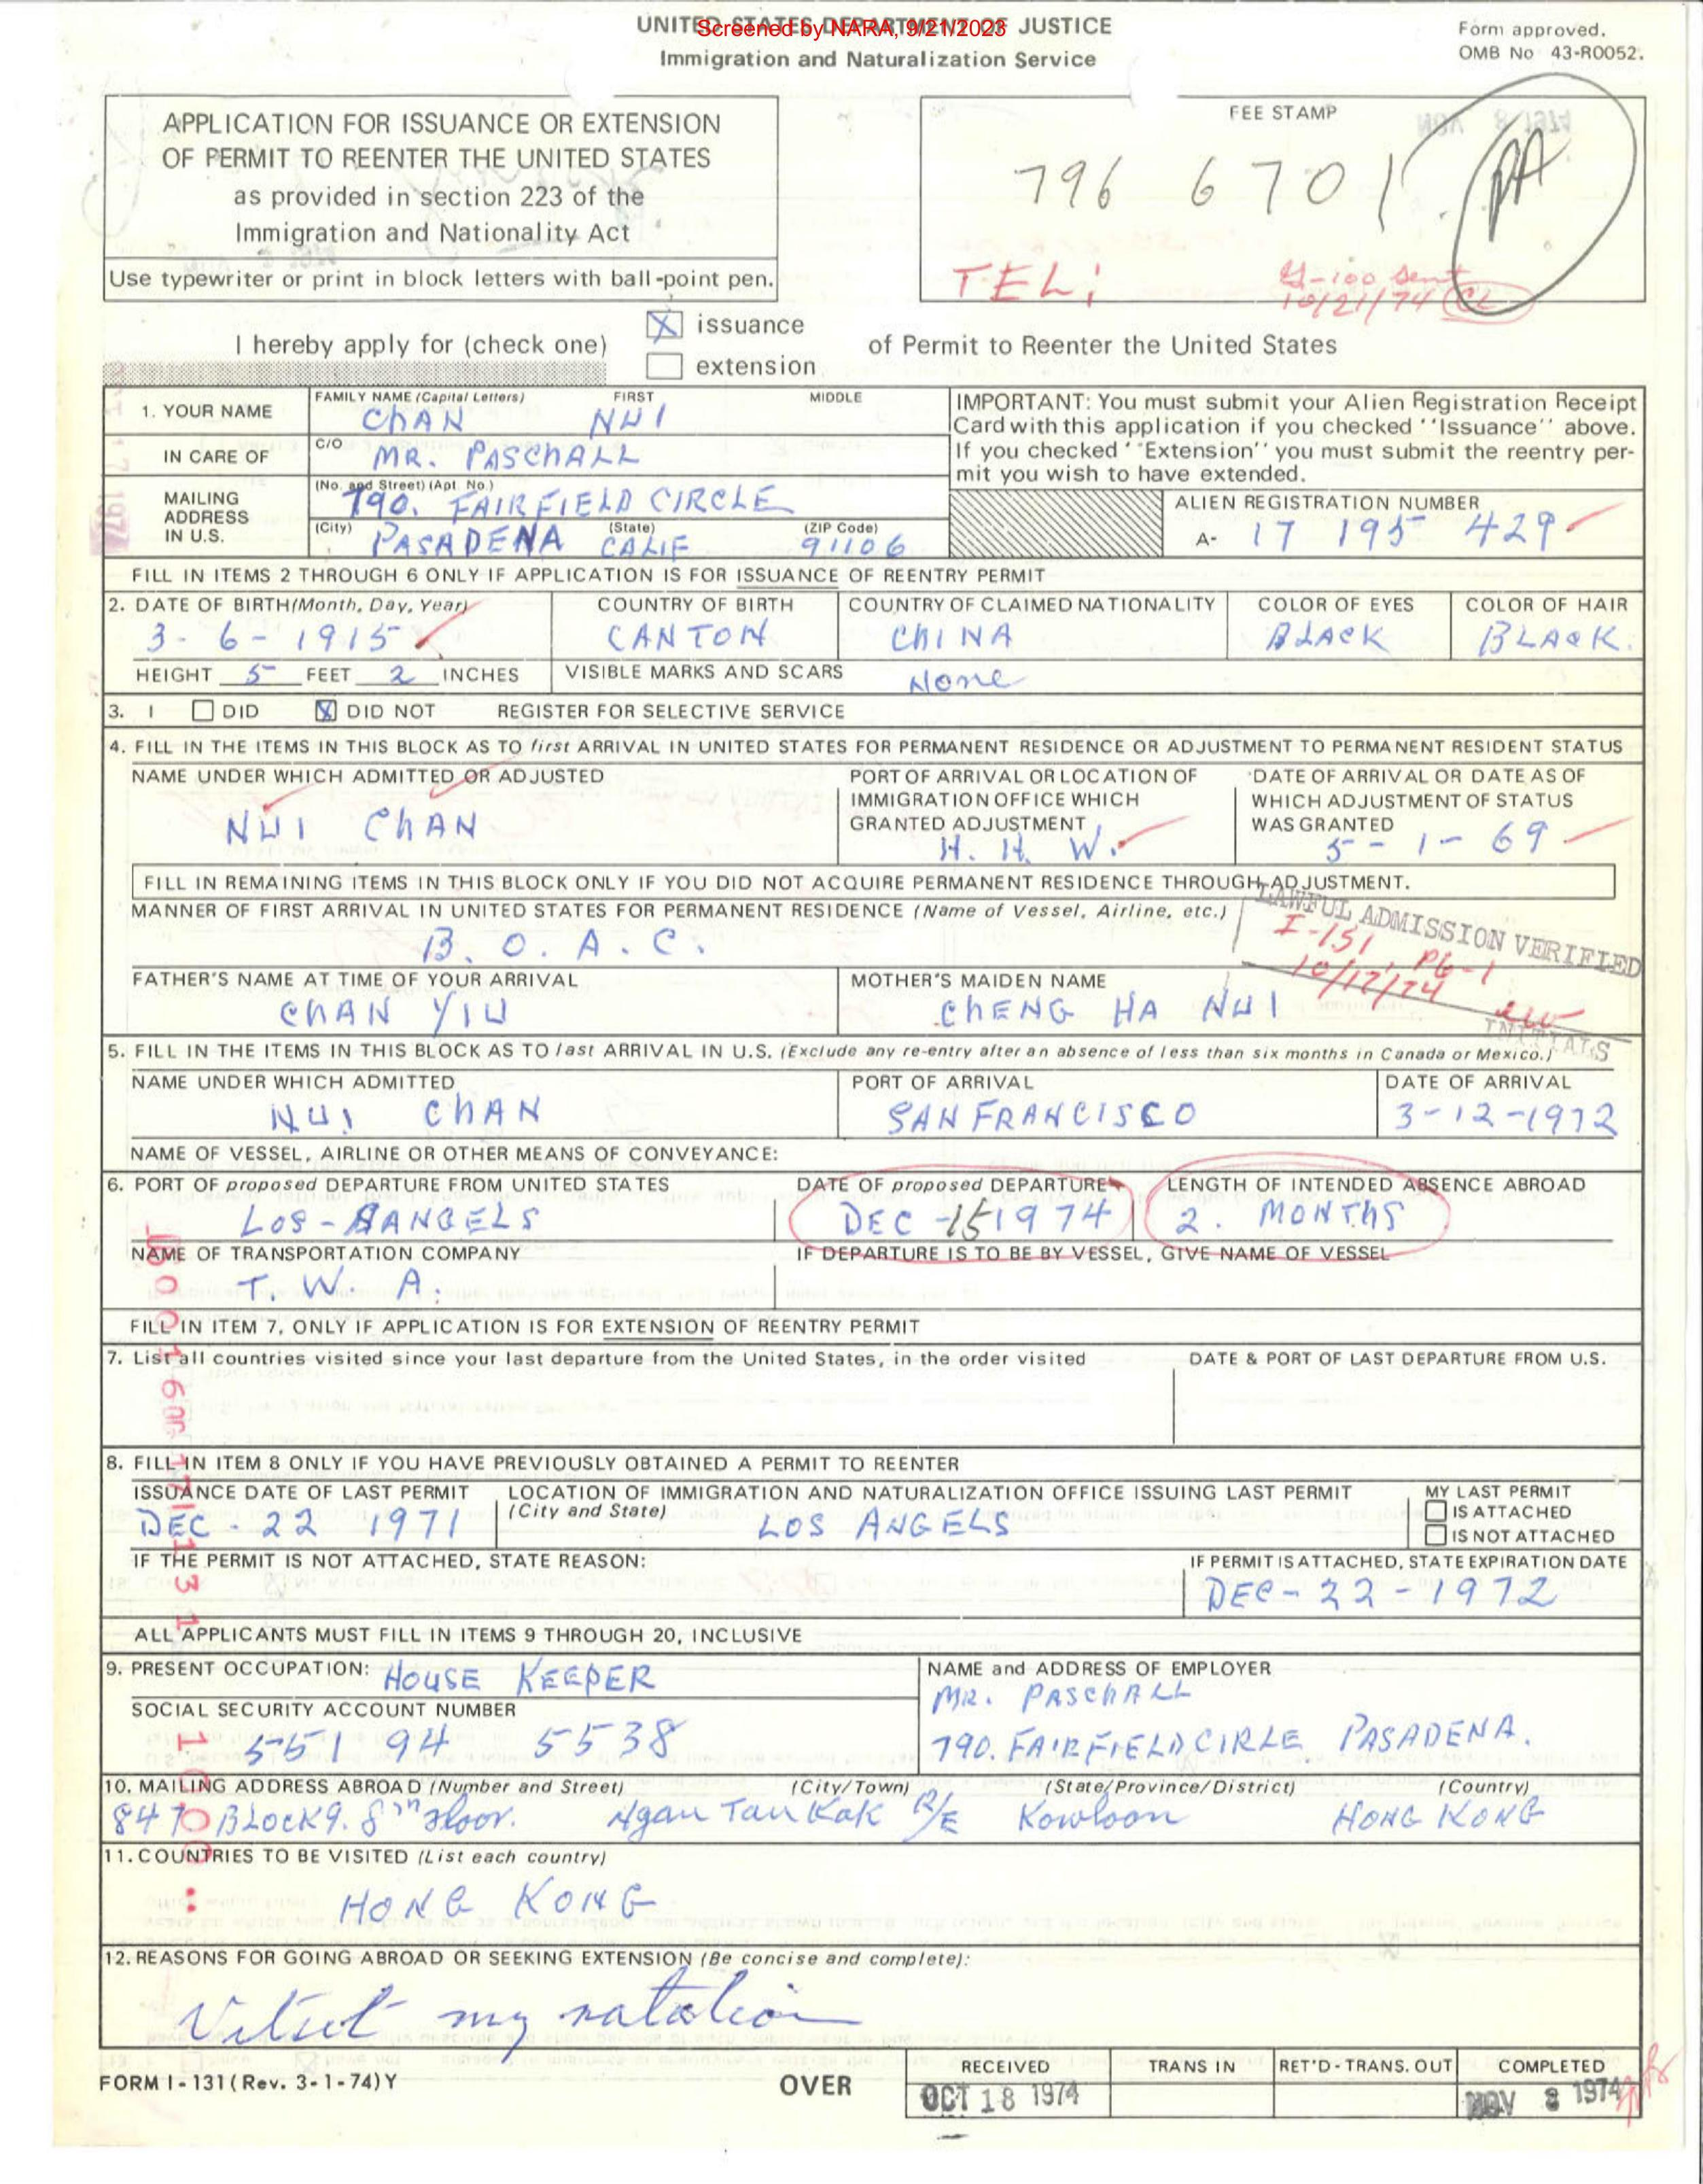 UNITED STATES DEPARTMENT OF JUSTICE
Screened by NARA, 9/21/2023
Immigration and Naturalization Service
Form approved.
OMB No 43-R0052.
APPLICATION FOR ISSUANCE OR EXTENSION
OF PERMIT TO REENTER THE UNITED STATES
as provided in section 223 of the
Immigration and Nationality Act
Use typewriter or print in block letters with ball-point pen.
FEE STAMP
796 6701
PA
TEL:
G-100 Sent
10/21/74 CL
I hereby apply for (check one)
X issuance
extension
of Permit to Reenter the United States
1. YOUR NAME
FAMILY NAME (Capital Letters) FIRST MIDDLE
CHAN NUI
IN CARE OF
C/O
MR. PASCHALL
MAILING
ADDRESS
IN U.S.
(No. and Street) (Apt. No.)
790. FAIRFIELD CIRCLE
(City) (State) (ZIP Code)
PASADENA CALIF 91106
IMPORTANT: You must submit your Alien Registration Receipt
Card with this application if you checked ''Issuance'' above.
If you checked ''Extension'' you must submit the reentry per-
mit you wish to have extended.
ALIEN REGISTRATION NUMBER
A- 17 195 429
FILL IN ITEMS 2 THROUGH 6 ONLY IF APPLICATION IS FOR ISSUANCE OF REENTRY PERMIT
2. DATE OF BIRTH (Month, Day, Year) COUNTRY OF BIRTH COUNTRY OF CLAIMED NATIONALITY COLOR OF EYES COLOR OF HAIR
3-6-1915 CANTON CHINA BLACK BLACK.
HEIGHT 5 FEET 2 INCHES VISIBLE MARKS AND SCARS None
3. I DID X DID NOT REGISTER FOR SELECTIVE SERVICE
4. FILL IN THE ITEMS IN THIS BLOCK AS TO first ARRIVAL IN UNITED STATES FOR PERMANENT RESIDENCE OR ADJUSTMENT TO PERMANENT RESIDENT STATUS
NAME UNDER WHICH ADMITTED OR ADJUSTED
NUI CHAN
PORT OF ARRIVAL OR LOCATION OF
IMMIGRATION OFFICE WHICH
GRANTED ADJUSTMENT
H. H. W.
DATE OF ARRIVAL OR DATE AS OF
WHICH ADJUSTMENT OF STATUS
WAS GRANTED
5-1-69
FILL IN REMAINING ITEMS IN THIS BLOCK ONLY IF YOU DID NOT ACQUIRE PERMANENT RESIDENCE THROUGH ADJUSTMENT.
MANNER OF FIRST ARRIVAL IN UNITED STATES FOR PERMANENT RESIDENCE (Name of Vessel, Airline, etc.)
B. O. A. C.
LAWFUL ADMISSION VERIFIED
I-151, PG-1
10/17/74
INITIALS
FATHER'S NAME AT TIME OF YOUR ARRIVAL
CHAN YIU
MOTHER'S MAIDEN NAME
CHENG HA NUI
5. FILL IN THE ITEMS IN THIS BLOCK AS TO last ARRIVAL IN U.S. (Exclude any re-entry after an absence of less than six months in Canada or Mexico.)
NAME UNDER WHICH ADMITTED PORT OF ARRIVAL DATE OF ARRIVAL
NUI CHAN SAN FRANCISCO 3-12-1972
NAME OF VESSEL, AIRLINE OR OTHER MEANS OF CONVEYANCE:
6. PORT OF proposed DEPARTURE FROM UNITED STATES DATE OF proposed DEPARTURE LENGTH OF INTENDED ABSENCE ABROAD
LOS-AANGELS DEC -15 1974 2. MONTHS
NAME OF TRANSPORTATION COMPANY IF DEPARTURE IS TO BE BY VESSEL, GIVE NAME OF VESSEL
T. W. A.
FILL IN ITEM 7, ONLY IF APPLICATION IS FOR EXTENSION OF REENTRY PERMIT
7. List all countries visited since your last departure from the United States, in the order visited DATE & PORT OF LAST DEPARTURE FROM U.S.
8. FILL IN ITEM 8 ONLY IF YOU HAVE PREVIOUSLY OBTAINED A PERMIT TO REENTER
ISSUANCE DATE OF LAST PERMIT
DEC - 22 1971
LOCATION OF IMMIGRATION AND NATURALIZATION OFFICE ISSUING LAST PERMIT
(City and State)
LOS ANGELS
MY LAST PERMIT
IS ATTACHED
IS NOT ATTACHED
IF THE PERMIT IS NOT ATTACHED, STATE REASON:
IF PERMIT IS ATTACHED, STATE EXPIRATION DATE
DEC-22-1972
ALL APPLICANTS MUST FILL IN ITEMS 9 THROUGH 20, INCLUSIVE
9. PRESENT OCCUPATION: HOUSE KEEPER
SOCIAL SECURITY ACCOUNT NUMBER
551 94 5538
NAME and ADDRESS OF EMPLOYER
MR. PASCHALL
790. FAIRFIELD CIRLE PASADENA.
10. MAILING ADDRESS ABROAD (Number and Street) (City/Town) (State/Province/District) (Country)
847 BLOCK 9. 8th Floor. Ngau Tau Kak R/E Kowloon HONG KONG
11. COUNTRIES TO BE VISITED (List each country)
HONG KONG
12. REASONS FOR GOING ABROAD OR SEEKING EXTENSION (Be concise and complete):
Vitsit my natation
FORM I-131 (Rev. 3-1-74) Y
OVER
RECEIVED TRANS IN RET'D-TRANS. OUT COMPLETED
OCT 18 1974
NOV 8 1974